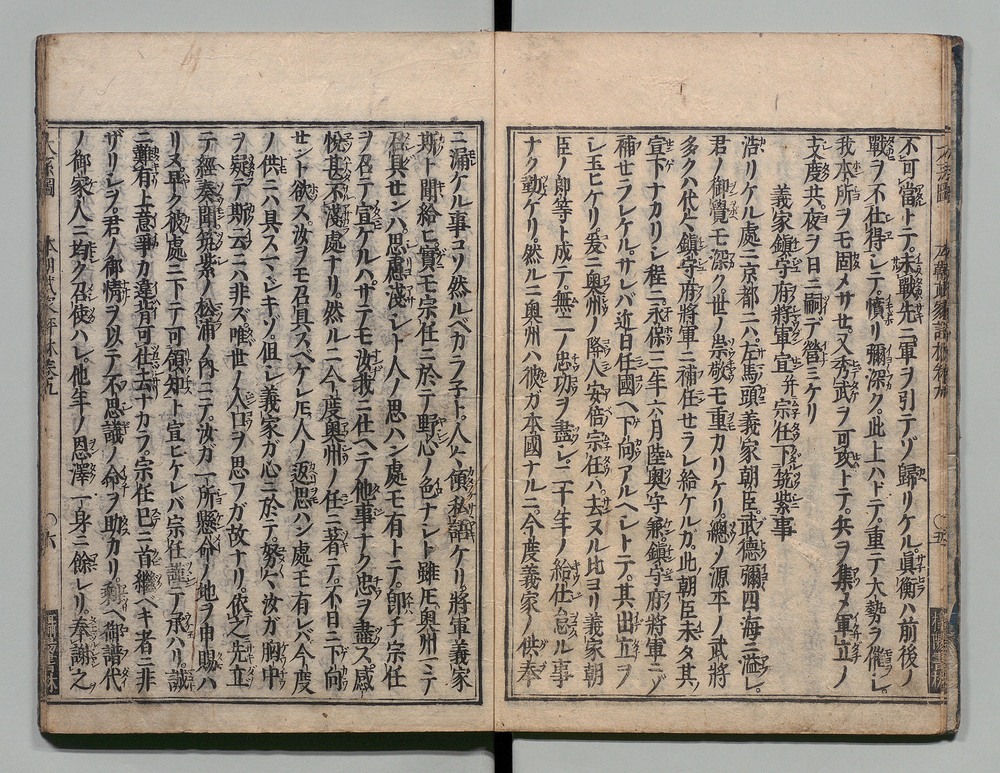 不可當トテ。未戰先ニ軍ヲ引テゾ歸リケル。眞衡ハ前後ノ
戰ヲ不仕得シテ。憤リ彌深ク。此上ハトテ。重テ大勢ヲ催シ。
我本所ヲモ固メサセ。又秀武ヲ可攻トテ。兵ヲ集メ軍立ノ
支度共。夜ヲ日ニ嗣デ營ミケリ
義家鎭守府將軍宣弁宗任下筑紫事
浩リケル處ニ京都ニハ。左馬頭義家朝臣武德彌四海ニ溢レ。
君ノ御覺モ深ク。世ノ崇敬モ重カリケリ。總ノ源平ノ武將
多クハ代々鎭守府將軍ニ補任セラレ給ケルガ。此朝臣未タ其
宣下ナカリシ程ニ。永保三年六月陸奥守兼鎭守府將軍ニゾ
補セラレケル。サレバ近日任國ヘ下向アルヘシトテ。其出立ヲ
シ玉ヒケリ。爰ニ奥州ノ降人安倍宗任ハ。去ヌル比ヨリ義家朝
臣ノ郎等ト成テ。無二ノ忠功ヲ盡シ。二十年ノ給仕怠ル事
ナク勤ケリ。然ルニ奥州ハ彼ガ本國ナルニ。今度義家ノ供奉
ニ漏ケル事コソ然ルベカラ子ト。人々傾私語ケリ。將軍義家
斯ト聞給ヒ。實モ宗任ニ於テ野心ノ色ナシト雖𪜈。奥州ニテ
召具センハ。思慮淺シト人ノ思ハン處モ有トテ。卽チ宗任
ヲ召テ宣ケルハ。サテモ汝我ニ仕ヘテ他事ナク忠ヲ盡ス。感
悦甚不淺處ナリ。然ルニ今度奥州ノ任ニ著テ。不日ニ下向
セント欲ス。汝ヲモ召具スベケレ𪜈。人ノ返思ハン處モ有レバ。今度
ノ供ニハ具スマジキゾ。但シ義家ガ心ニ於テ。努々汝ガ胸中
ヲ疑デ斯云ニハ非ズ。唯世ノ人口ヲ思フガ故ナリ。依之先立
テ經奏聞。筑紫ノ松浦ノ内ニテ。汝ガ一所懸命ノ地ヲ申賜ハ
リヌ。早ク彼處ニ下テ可領知ト宣ヒケレバ。宗任謹テ承ハリ。誠
ニ難有上意。爭カ違背可仕。去ナカラ。宗任巳ニ首繼ベキ者ニ非
ザリシヲ。君ノ御情ヲ以テ不思議ノ命ヲ助カリ。剩ヘ御譜代
ノ御家人ニ均ク召使ハレ。他年ノ恩澤一身ニ餘レリ。奉謝之